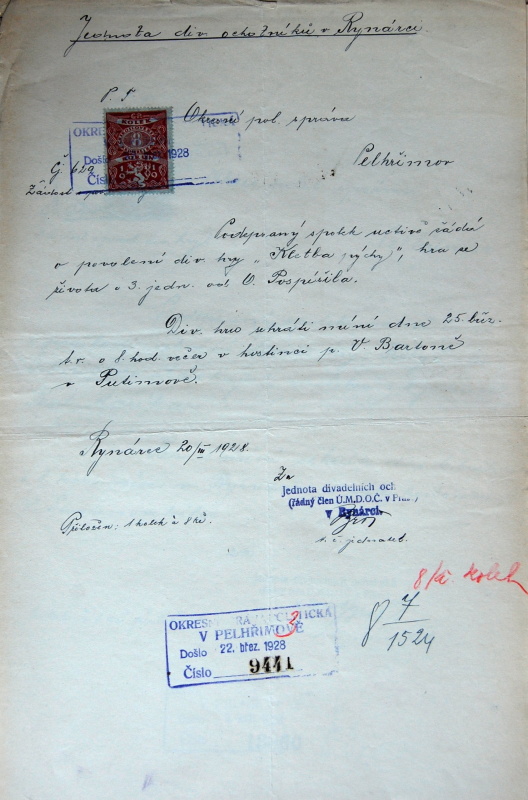 Jednota div. ochotníků v Rynárci
P. T.
Okresní pol. správa
Pelhřimov
OKRES
Došlo 1928
Číslo
Č. 629
Žádost
Podepsaný spolek uctivě žádá
o povolení div. hry „Kletba pýchy", hra ze
života o 3. jedn. od O. Pospíšila.
Div. hru sehráti míní dne 25. břez.
t. r. o 8. hod. večer v hostinci p. V. Bartoně
v Putimově.
Rynárec 20/III 1928.
Za
Jednota divadelních och
(řádný člen Ú.M.D.O.Č. v
v Rynárci
t. č. jednatel.
Přiložen: 1 kolek à 8 kč.
8/kč. kolek
8 7/1524
3
OKRESNÍ POLITICKÁ
V PELHŘIMOVĚ
Došlo 22. břez. 1928
Číslo 9441